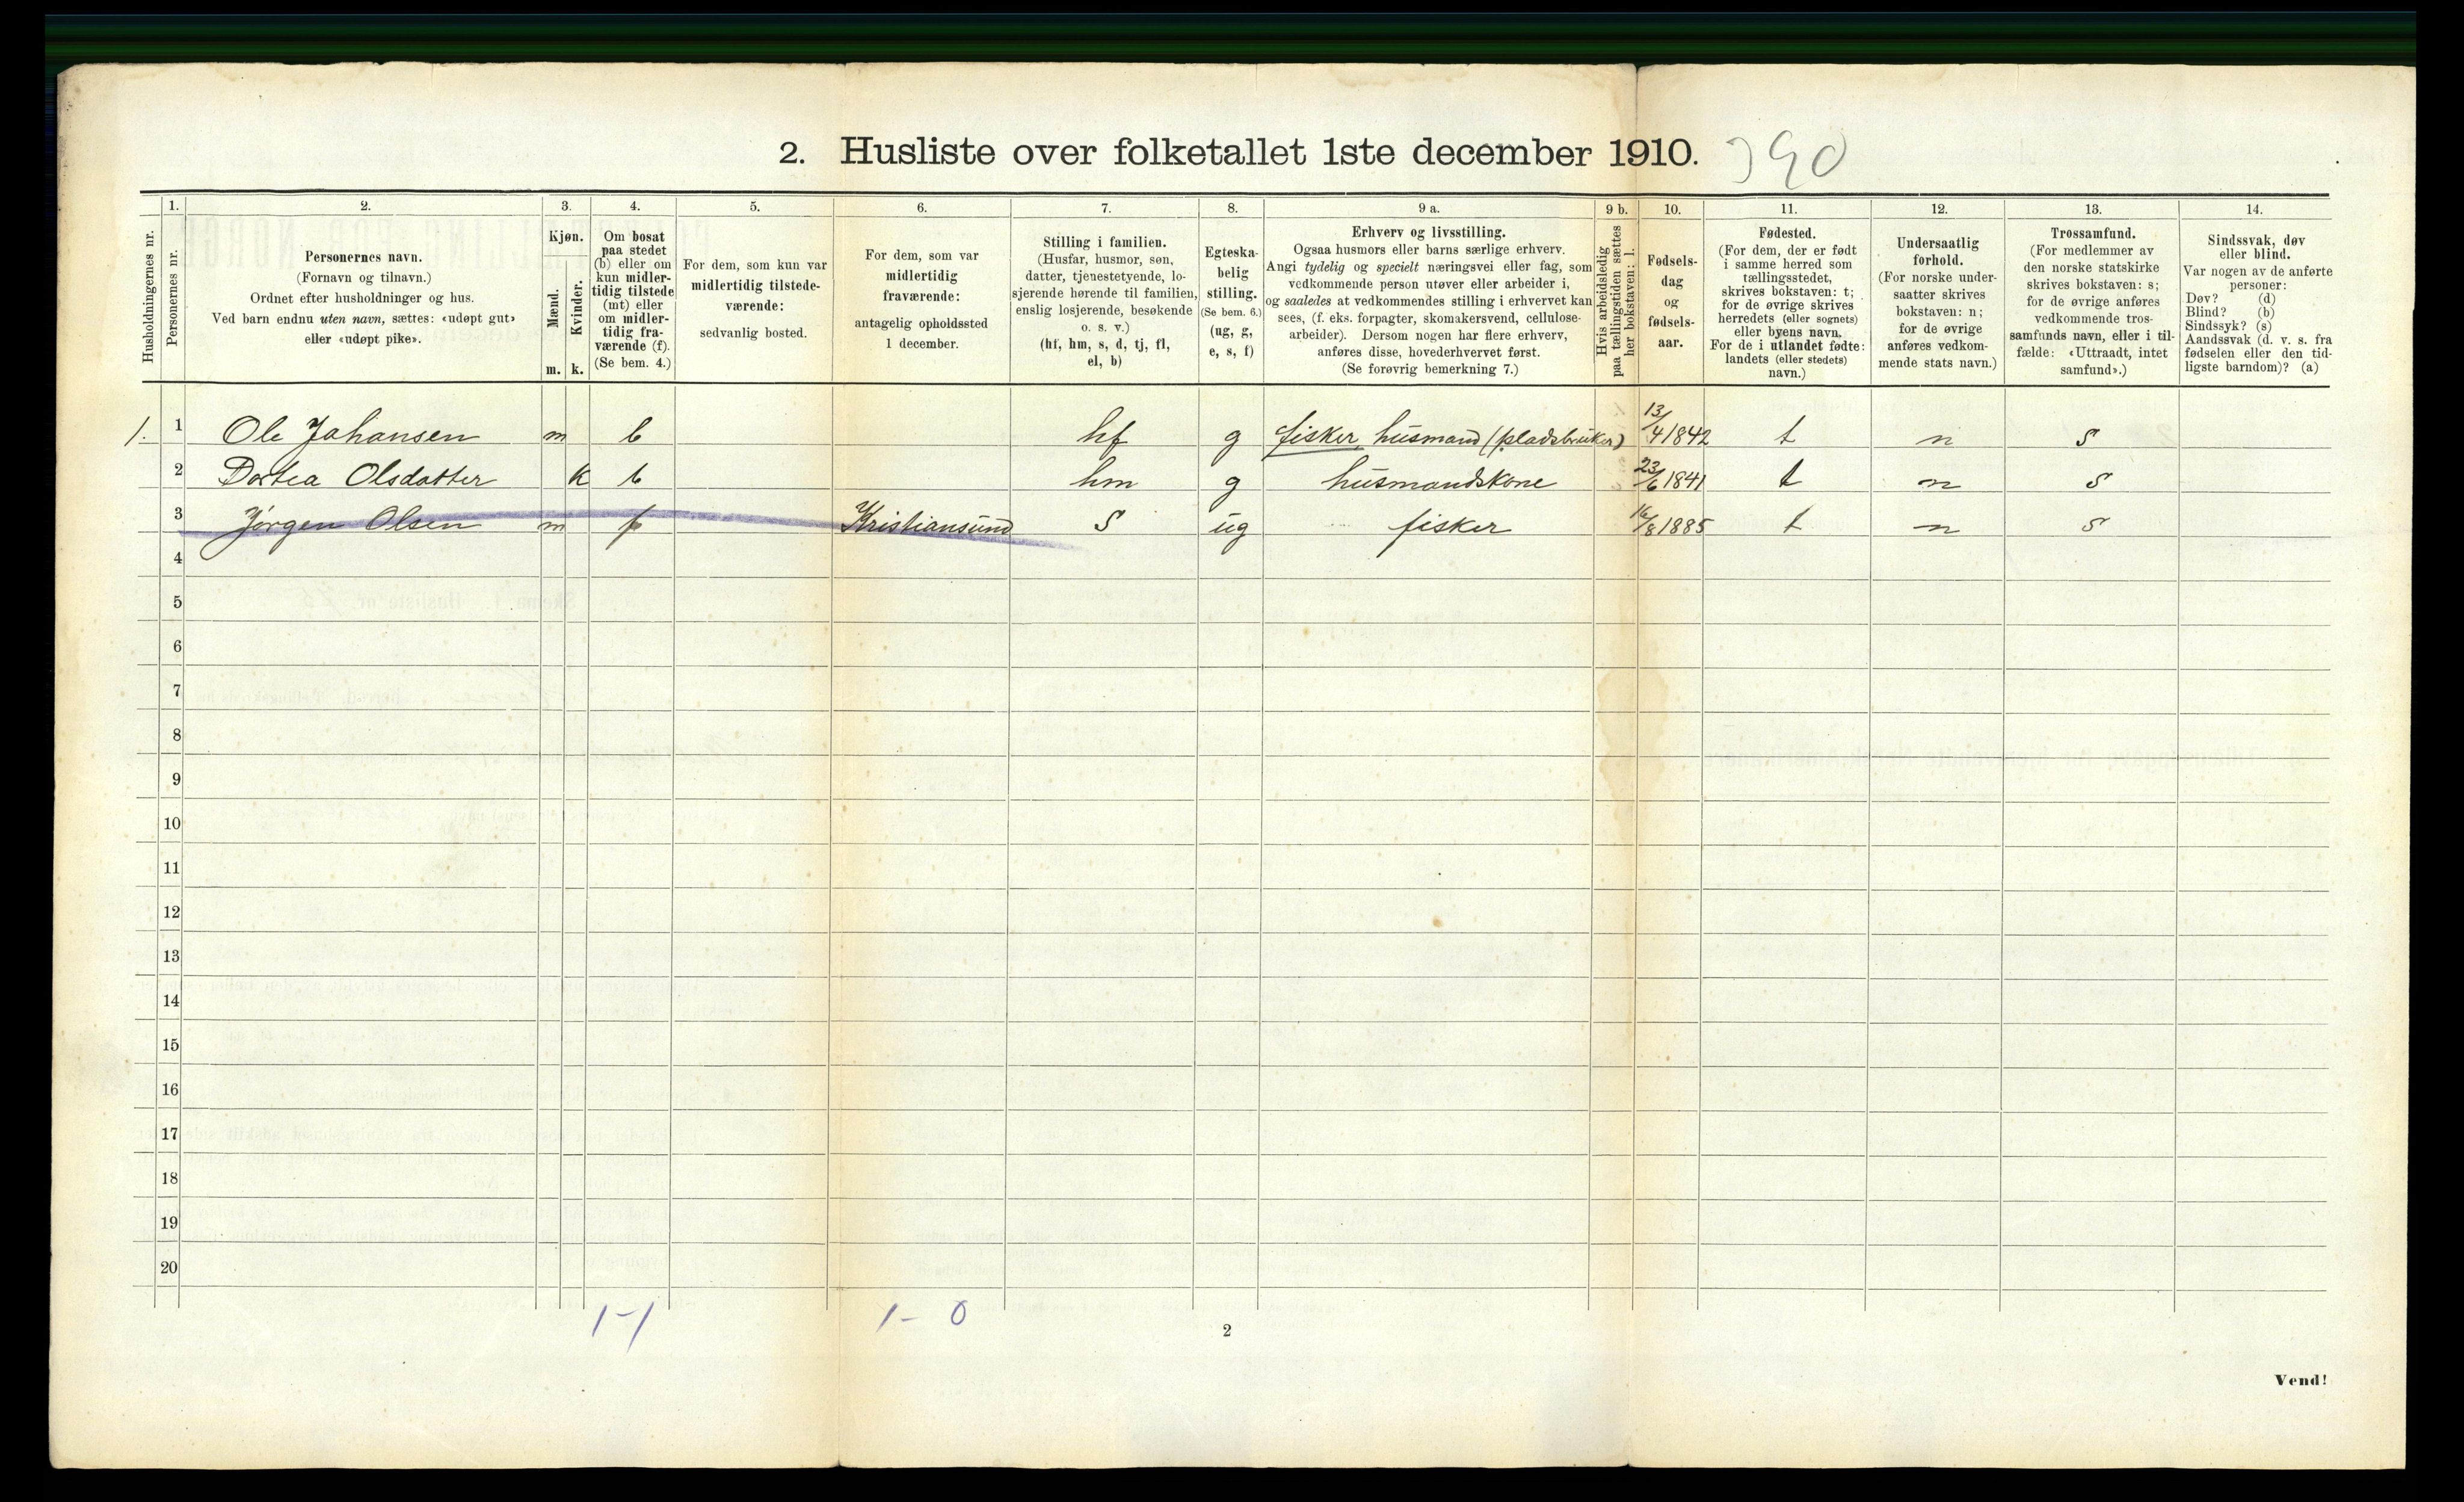 2. Husliste over folketallet 1ste december 1910. 390
Husholdningernes nr.
1.
Personernes nr.
2.
Personernes navn.
(Fornavn og tilnavn.)
Ordnet efter husholdninger og hus.
Ved barn endnu uten navn, sættes: «udøpt gut»
eller «udøpt pike».
3.
Kjøn.
Mænd.
Kvinder.
m. k.
4.
Om bosat
paa stedet
(b) eller om
kun midler-
tidig tilstede
(mt) eller
om midler-
tidig fra-
værende (f).
(Se bem. 4.)
5.
For dem, som kun var
midlertidig tilstede-
værende:
sedvanlig bosted.
6.
For dem, som var
midlertidig
fraværende:
antagelig opholdssted
1 december.
7.
Stilling i familien.
(Husfar, husmor, søn,
datter, tjenestetyende, lo-
sjerende hørende til familien,
enslig losjerende, besøkende
o. s. v.)
(hf, hm, s, d, tj, fl,
el, b)
8.
Egteska-
belig
stilling.
(Se bem. 6.)
(ug, g,
e, s, f)
9 a.
Erhverv og livsstilling.
Ogsaa husmors eller barns særlige erhverv.
Angi tydelig og specielt næringsvei eller fag, som
vedkommende person utøver eller arbeider i,
og saaledes at vedkommendes stilling i erhvervet kan
sees, (f. eks. forpagter, skomakersvend, cellulose-
arbeider). Dersom nogen har flere erhverv,
anføres disse, hovederhvervet først.
(Se forøvrig bemerkning 7.)
9 b.
Hvis arbeidsledig
paa tællingstiden sættes
her bokstaven: l.
10.
Fødsels-
dag
og
fødsels-
aar.
11.
Fødested.
(For dem, der er født
i samme herred som
tællingsstedet,
skrives bokstaven: t;
for de øvrige skrives
herredets (eller sognets)
eller byens navn.
For de i utlandet fødte:
landets (eller stedets)
navn.)
12.
Undersaatlig
forhold.
(For norske under-
saatter skrives
bokstaven: n;
for de øvrige
anføres vedkom-
mende stats navn.)
13.
Trossamfund.
(For medlemmer av
den norske statskirke
skrives bokstaven: s;
for de øvrige anføres
vedkommende tros-
samfunds navn, eller i til-
fælde: «Uttraadt, intet
samfund».)
14.
Sindssvak, døv
eller blind.
Var nogen av de anførte
personer:
Døv? (d)
Blind? (b)
Sindssyk? (s)
Aandssvak (d. v. s. fra
fødselen eller den tid-
ligste barndom)? (a)
1. 1 Ole Johansen m b hf g fisker, husmand (pladsbruker) 13/4 1842 t n s
2 Dortea Olsdatter k b hm g husmandskone 23/6 1841 t n s
3 Jørgen Olsen m f Kristiansund s ug fisker 16/8 1885 t n s
4
5
6
7
8
9
10
11
12
13
14
15
16
17
18
19
20
1-1 1-0
2
Vend!